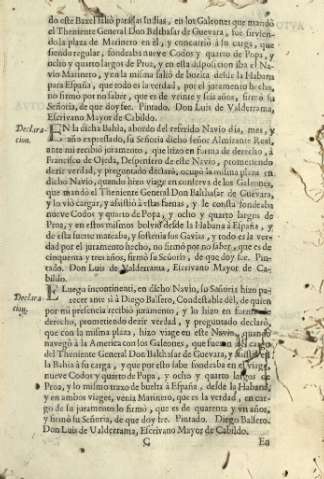 do este Baxel saliò para las Indias, en los Galeones que mandò
el Theniente General Don Balthasar de Guevara, fue sirvien-
do la plaza de Marinero en èl, y concurriò à su carga, que
siendo regular, fondeaba nueve Codos y quarto de Popa, y
ocho y quarto largos de Proa, y en esta disposicion iba el Na-
vio Marinero, y en la misma saliò de buelta desde la Habana
para España, que todo es la verdad, por el juramento hecho,
no firmò por no saber, que es de veinte y seis años, firmò su
Señoria, de que doy fee. Pintado. Don Luis de Valderrama,
Escrivano Mayor de Cabildo.
Declara-
cion.
EN la dicha Bahia, abordo del referido Navio dia, mes, y
año expressado, su Señoria dicho señor Almirante Real,
ante mi recibiò juramento, que hizo en forma de derecho, à
Francisco de Ojeda, Despensero de este Navio, prometiendo
dezir verdad, y preguntado declarò, ocupò la misma plaza en
dicho Navio, quando hizo viage en conserva de los Galeones,
que mandò el Theniente General Don Balthasar de Guevara,
y lo viò cargar, y assistiò à estas faenas, y le consta fondeaba
nueve Codos y quarto de Popa, y ocho y quarto largos de
Proa, y en estos mismos bolviò desde la Habana à España, y
de esta suerte maneaba, y sostenia sus Gavias, y todo es la ver-
dad por el juramento hecho, no firmò por no saber, que es de
cinquenta y tres años, firmò su Señoria, de que doy fee. Pin-
tado. Don Luis de Valderrama, Escrivano Mayor de Ca-
bildo.
Declara-
cion.
E Luego incontinenti, en dicho Navio, su Señoria hizo pa-
recer ante si à Diego Bassero, Condestable dèl, de quien
por mi presencia recibiò juramento, y lo hizo en forma de
derecho, prometiendo dezir verdad, y preguntado declarò,
que con la misma plaza, hizo viage en este Navio, quando
navegò à la America con los Galeones, que fueron del cargo
del Theniente General Don Balthasar de Guevara, y assistiò en
la Bahia à su carga, y que por esto sabe fondeaba en el viage,
nueve Codos y quarto de Popa, y ocho y quarto largos de
Proa, y lo mismo traxo de buelta à España, desde la Habana,
y en ambos viages, venia Marinero, que es la verdad, en car-
go de su juramento lo firmò, que es de quarenta y un años,
y firmò su Señoria, de que doy fee. Pintado. Diego Bassero.
Don Luis de Valderrama, Escrivano Mayor de Cabildo.
C En